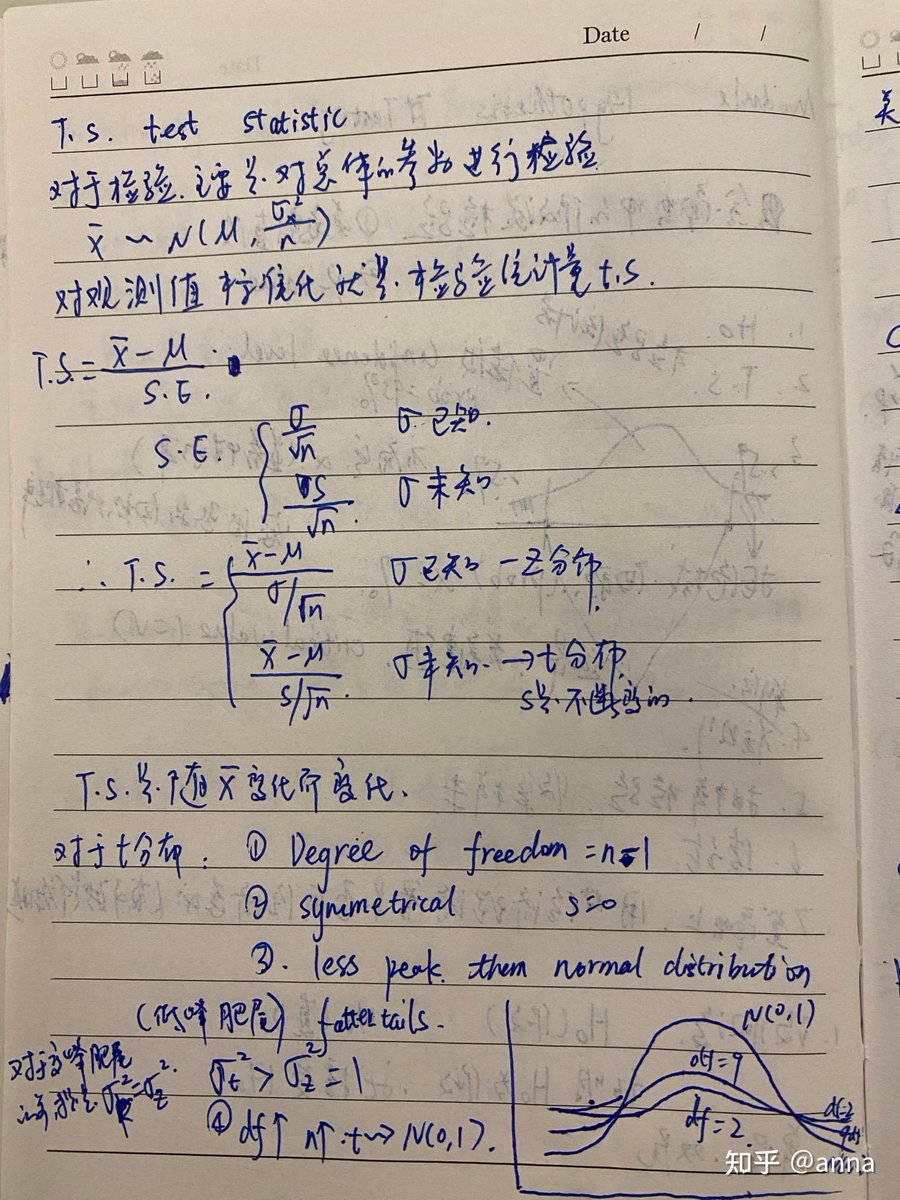 Date / /
T.s. test statistic
对于检验.主要是.对总体的参数进行检验
x̄ ~ N(μ, σx²/n)
对观测值 标准化就是.检验统计量t.s.
T.S. = (x̄-μ)/S.E.
S.E. { σ/√n σ已知.
s/√n σ未知
∴ T.S. = { (x̄-μ)/(σ/√n) σ已知 — Z分布.
(x̄-μ)/(s/√n). σ未知. → t分布,
s是.不断变的.
T.s.是.随x̄变化而变化.
对于t分布: ① Degree of freedom = n-1
② symmetrical s=0
③. less peak. them normal distribution
(低峰肥尾) fatter tails.
对于高峰肥尾
σt² > σz² = 1
④ df↑ n↑.t~>N(0,1).
N(0,1)
df=9
df=2.
df=2
知乎 @anna
美